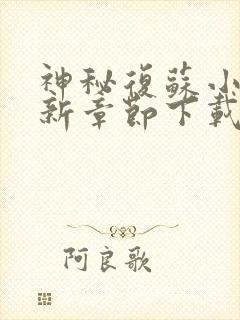 神秘復蘇小
新章節下載
阿良歌